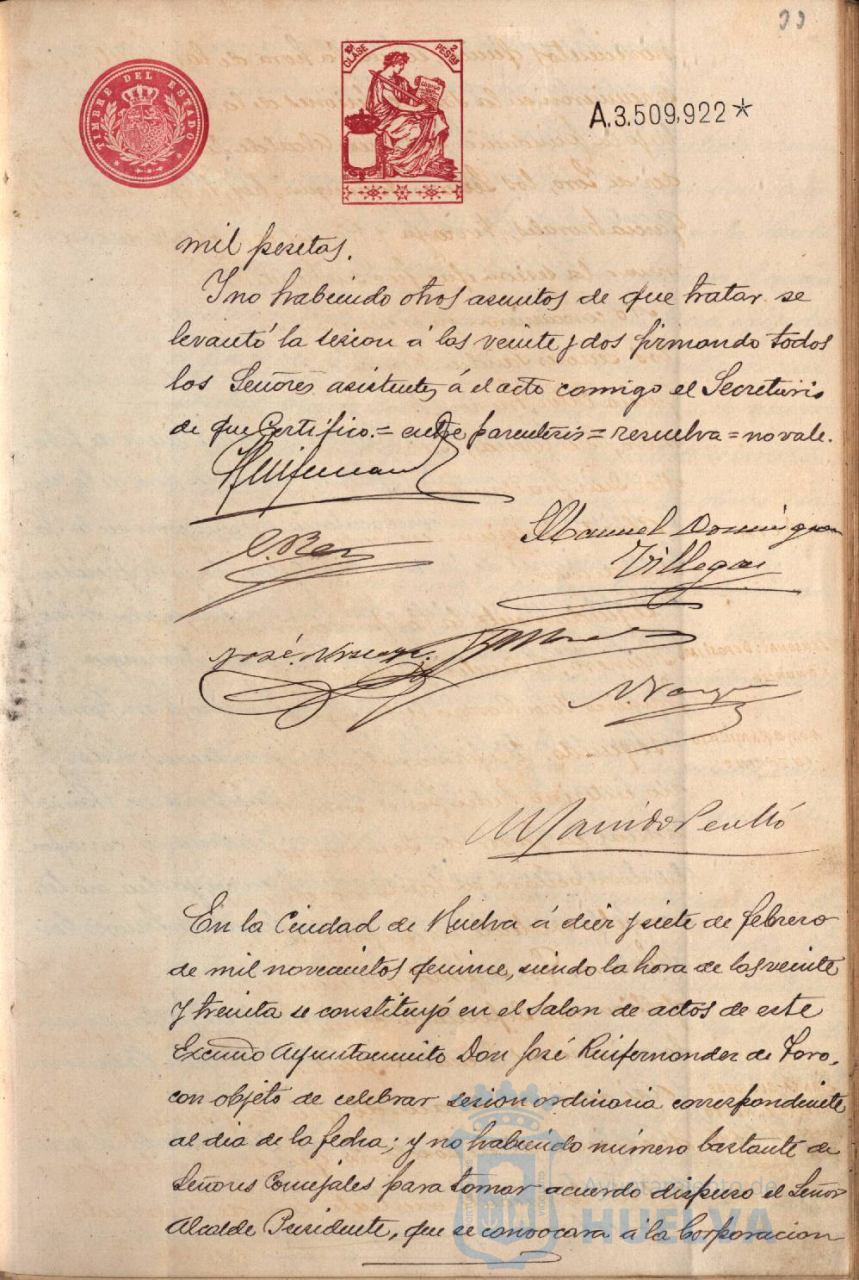 33
TIMBRE DEL ESTADO
10ª CLASE 2 PESETAS
A.3.509,922*
mil pesetas.
Y no habiendo otros asuntos de que tratar se
levantó la sesion á las veinte y dos firmando todos
los Señores asistentes á el acto comigo el Secretario
de que Certifico.= entre parentesis = resuelva = no vale.
Ruifernand
Manuel Dominguez
Villegas
José
N. Vazquez
En la Ciudad de Huelva á diez y siete de febrero
de mil novecientos quince, siendo la hora de las veinte
y treinta se constituyó en el Salon de actos de este
Excmo Ayuntamiento Don José Ruifernandez de Toro,
con objeto de celebrar sesion ordinaria correspondiente
al dia de la fecha; y no habiendo número bastante de
Señores Concejales para tomar acuerdo dispuso el Señor
Alcalde Presidente, que se convocara á la Corporacion
Ayuntamiento de
HUELVA